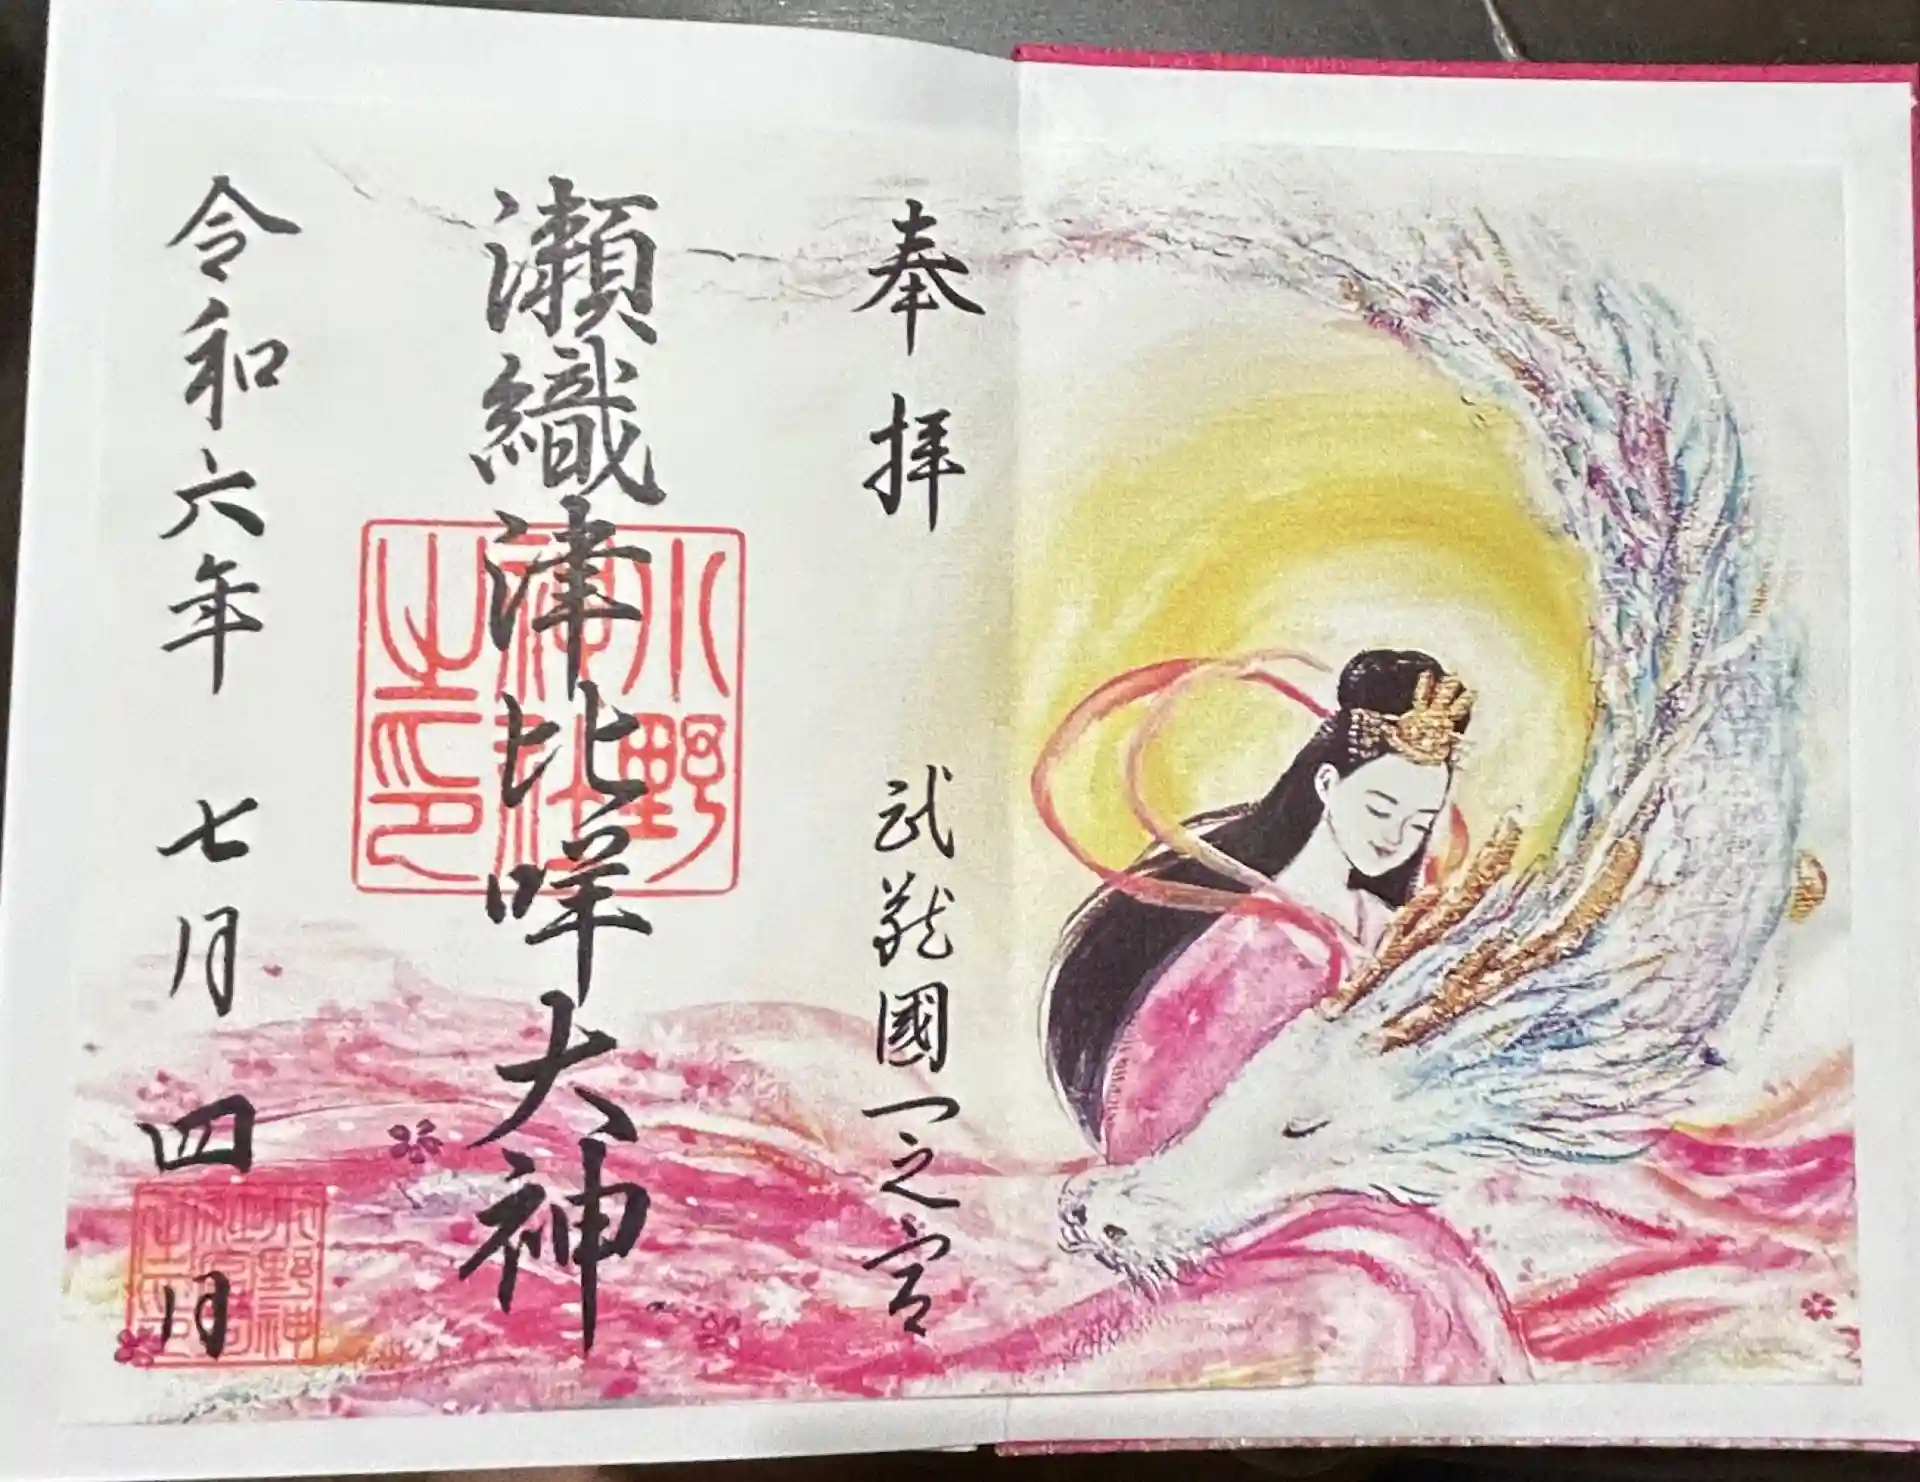 奉拝
武蔵國一之宮
瀨織津比咩大神
小野
神社
之印
令和六年 七月 四日
小野神
社宮司
之印